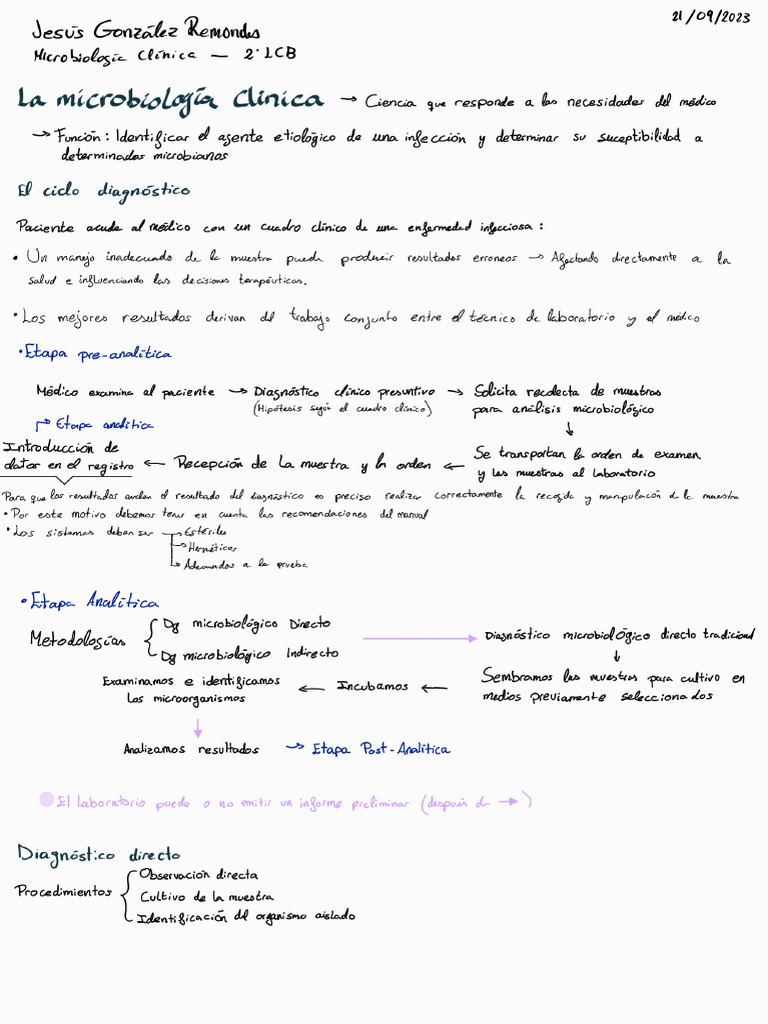 21/09/2023
Jesús González Remondes
Microbiología Clínica — 2º LCB
La microbiología Clínica → Ciencia que responde a las necesidades del médico
→ Función: Identificar el agente etiológico de una infección y determinar su suceptibilidad a
determinados microbianos
El ciclo diagnóstico
Paciente acude al médico con un cuadro clínico de una enfermedad infecciosa:
• Un manejo inadecuado de la muestra puede producir resultados erroneos → Afectando directamente a la
salud e influenciando las decisiones terapéuticas.
• Los mejores resultados derivan del trabajo conjunto entre el técnico de laboratorio y el médico
• Etapa pre-analítica
Médico examina al paciente → Diagnóstico clínico presuntivo → Solicita recolecta de muestras
(Hipótesis según el cuadro clínico) para análisis microbiológico
↓
Etapa analítica
Introducción de
datos en el registro ← Recepción de La muestra y la orden ← Se transportan la orden de examen
y las muestras al laboratorio
Para que los resultados el resultado del diagnóstico es preciso realizar correctamente la recogida y manipulación de la muestra
• Por este motivo debemos tener en cuenta las recomendaciones del manual
• Los sistemas deben ser → Estériles
→ Herméticos
→ Adecuados a la prueba
• Etapa Analítica
Metodologías { Dg microbiológico Directo → Diagnóstico microbiológico directo tradicional
Dg microbiológico Indirecto ↓
Examinamos e identificamos ← Incubamos ← Sembramos las muestras para cultivo en
Los microorganismos medios previamente seleccionados
↓
Analizamos resultados → Etapa Post-Analítica
El laboratorio puede o no emitir un informe preliminar (después de →)
Diagnóstico directo
Procedimientos { Observación directa
Cultivo de la muestra
Identificación del organismo aislado